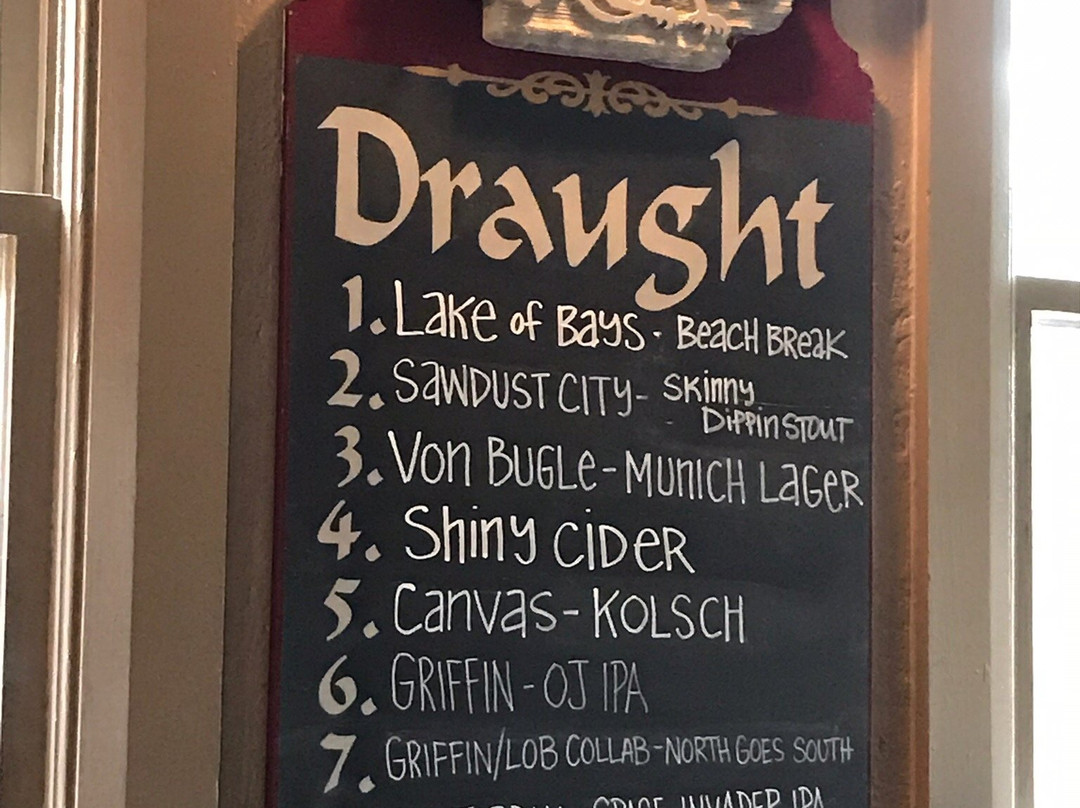 Draught
1. Lake of Bays - Beach Break
2. Sawdust City - Skinny
Dippin Stout
3. Von Bugle - Munich Lager
4. Shiny Cider
5. Canvas - Kolsch
6. GRIFFIN - OJ IPA
7. GRIFFIN/LOB COLLAB - NORTH GOES SOUTH
INVADER IPA